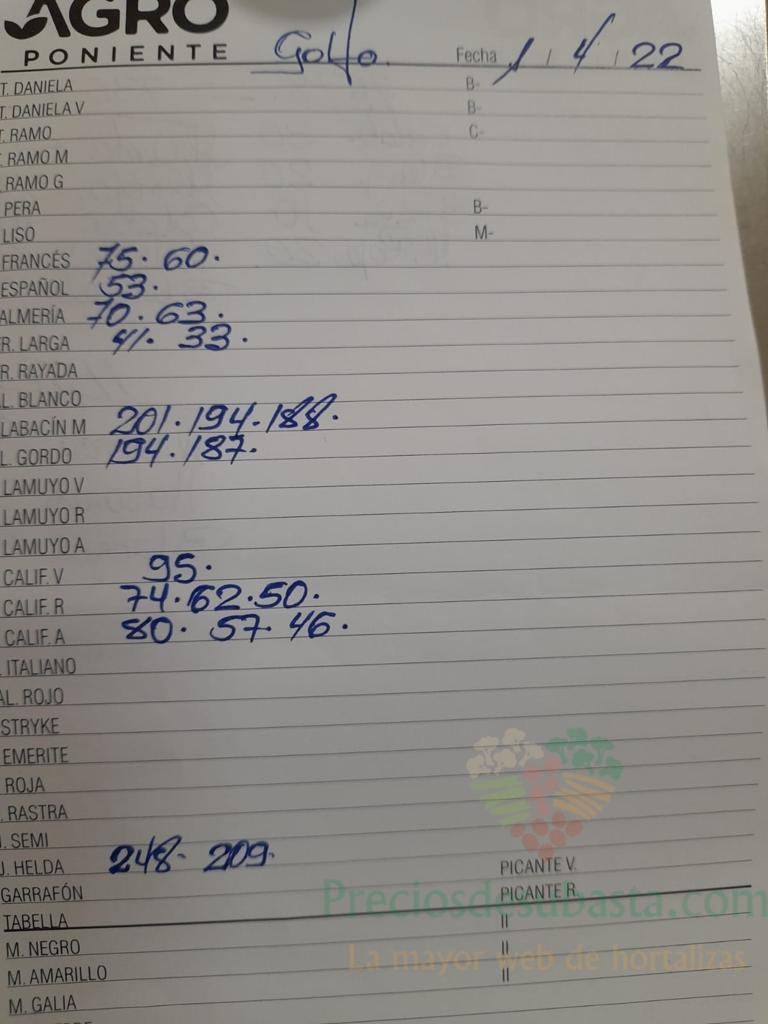 AGRO
PONIENTE Golfo Fecha 1 / 4 / 22
T. DANIELA B-
T. DANIELA V B-
T. RAMO C-
T. RAMO M
RAMO G
PERA B-
LISO M-
FRANCÉS 75. 60.
ESPAÑOL 53.
ALMERÍA 70. 63.
R. LARGA 41. 33.
R. RAYADA
L. BLANCO
LABACÍN M 201. 194. 188.
L. GORDO 194. 187.
LAMUYO V
LAMUYO R
LAMUYO A
CALIF. V 95.
CALIF. R 74. 62. 50.
CALIF. A 80. 57. 46.
ITALIANO
AL. ROJO
STRYKE
EMERITE
ROJA
RASTRA
J. SEMI
J. HELDA 248. 209. PICANTE V.
GARRAFÓN PICANTE R.
Preciosdesubasta.com
TABELLA II
M. NEGRO II
La mayor web de hortalizas
M. AMARILLO II
M. GALIA